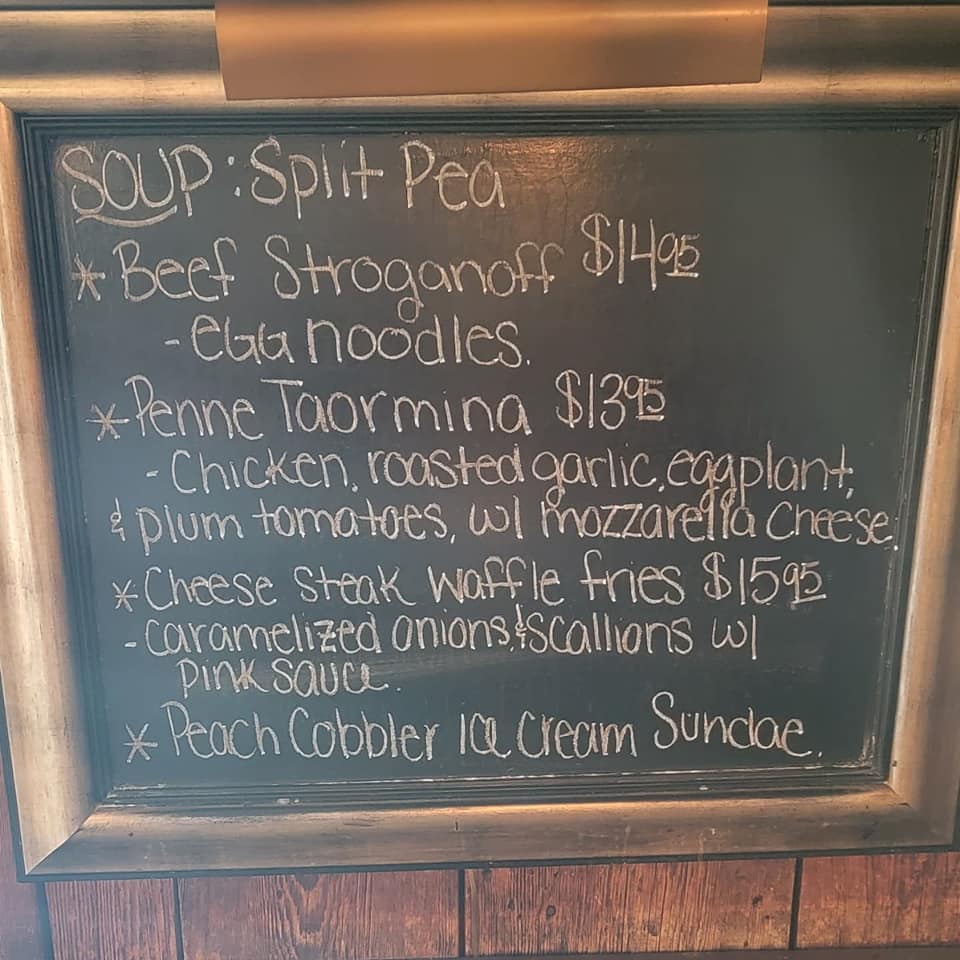 SOUP: Split Pea
* Beef Stroganoff $14.95
- EGG noodles.
* Penne Taormina $13.95
- Chicken, roasted garlic, eggplant,
& plum tomatoes, w/ mozzarella cheese.
* Cheese steak waffle fries $15.95
- caramelized onions, & scallions w/
pink sauce.
* Peach Cobbler Ice Cream Sundae.